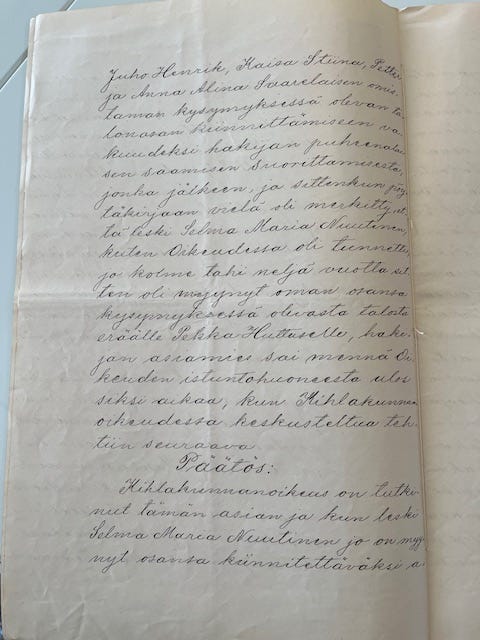 Juho Henrik, Kaisa Stiina, Petter
ja Anna Alina Saarelaisen omis-
taman kysymyksessä olevan ta-
lonosan kiinnittämiseen va-
kuudeksi hakijan puheenalai-
sen saamisen suorittamisesta,
jonka jälkeen, ja sittenkun pöy-
täkirjaan vielä oli merkitty, et-
tä leski Selma Maria Nuutinen,
kuten Oikeudessa oli tunnettu,
jo kolme tahi neljä vuotta sit-
ten oli myynyt oman osansa
kysymyksessä olevasta talosta
eräälle Pekka Huttuselle, haki-
jan asiamies sai mennä Oi-
keuden istuntohuoneesta ulos
siksi aikaa, kun Kihlakunnan-
oikeudessa keskusteltua teh-
tiin seuraava
Päätös:
Kihlakunnanoikeus on tutki-
nut tämän asian ja kun leski
Selma Maria Nuutinen jo on myy-
nyt osansa kiinnitettäväksi a-